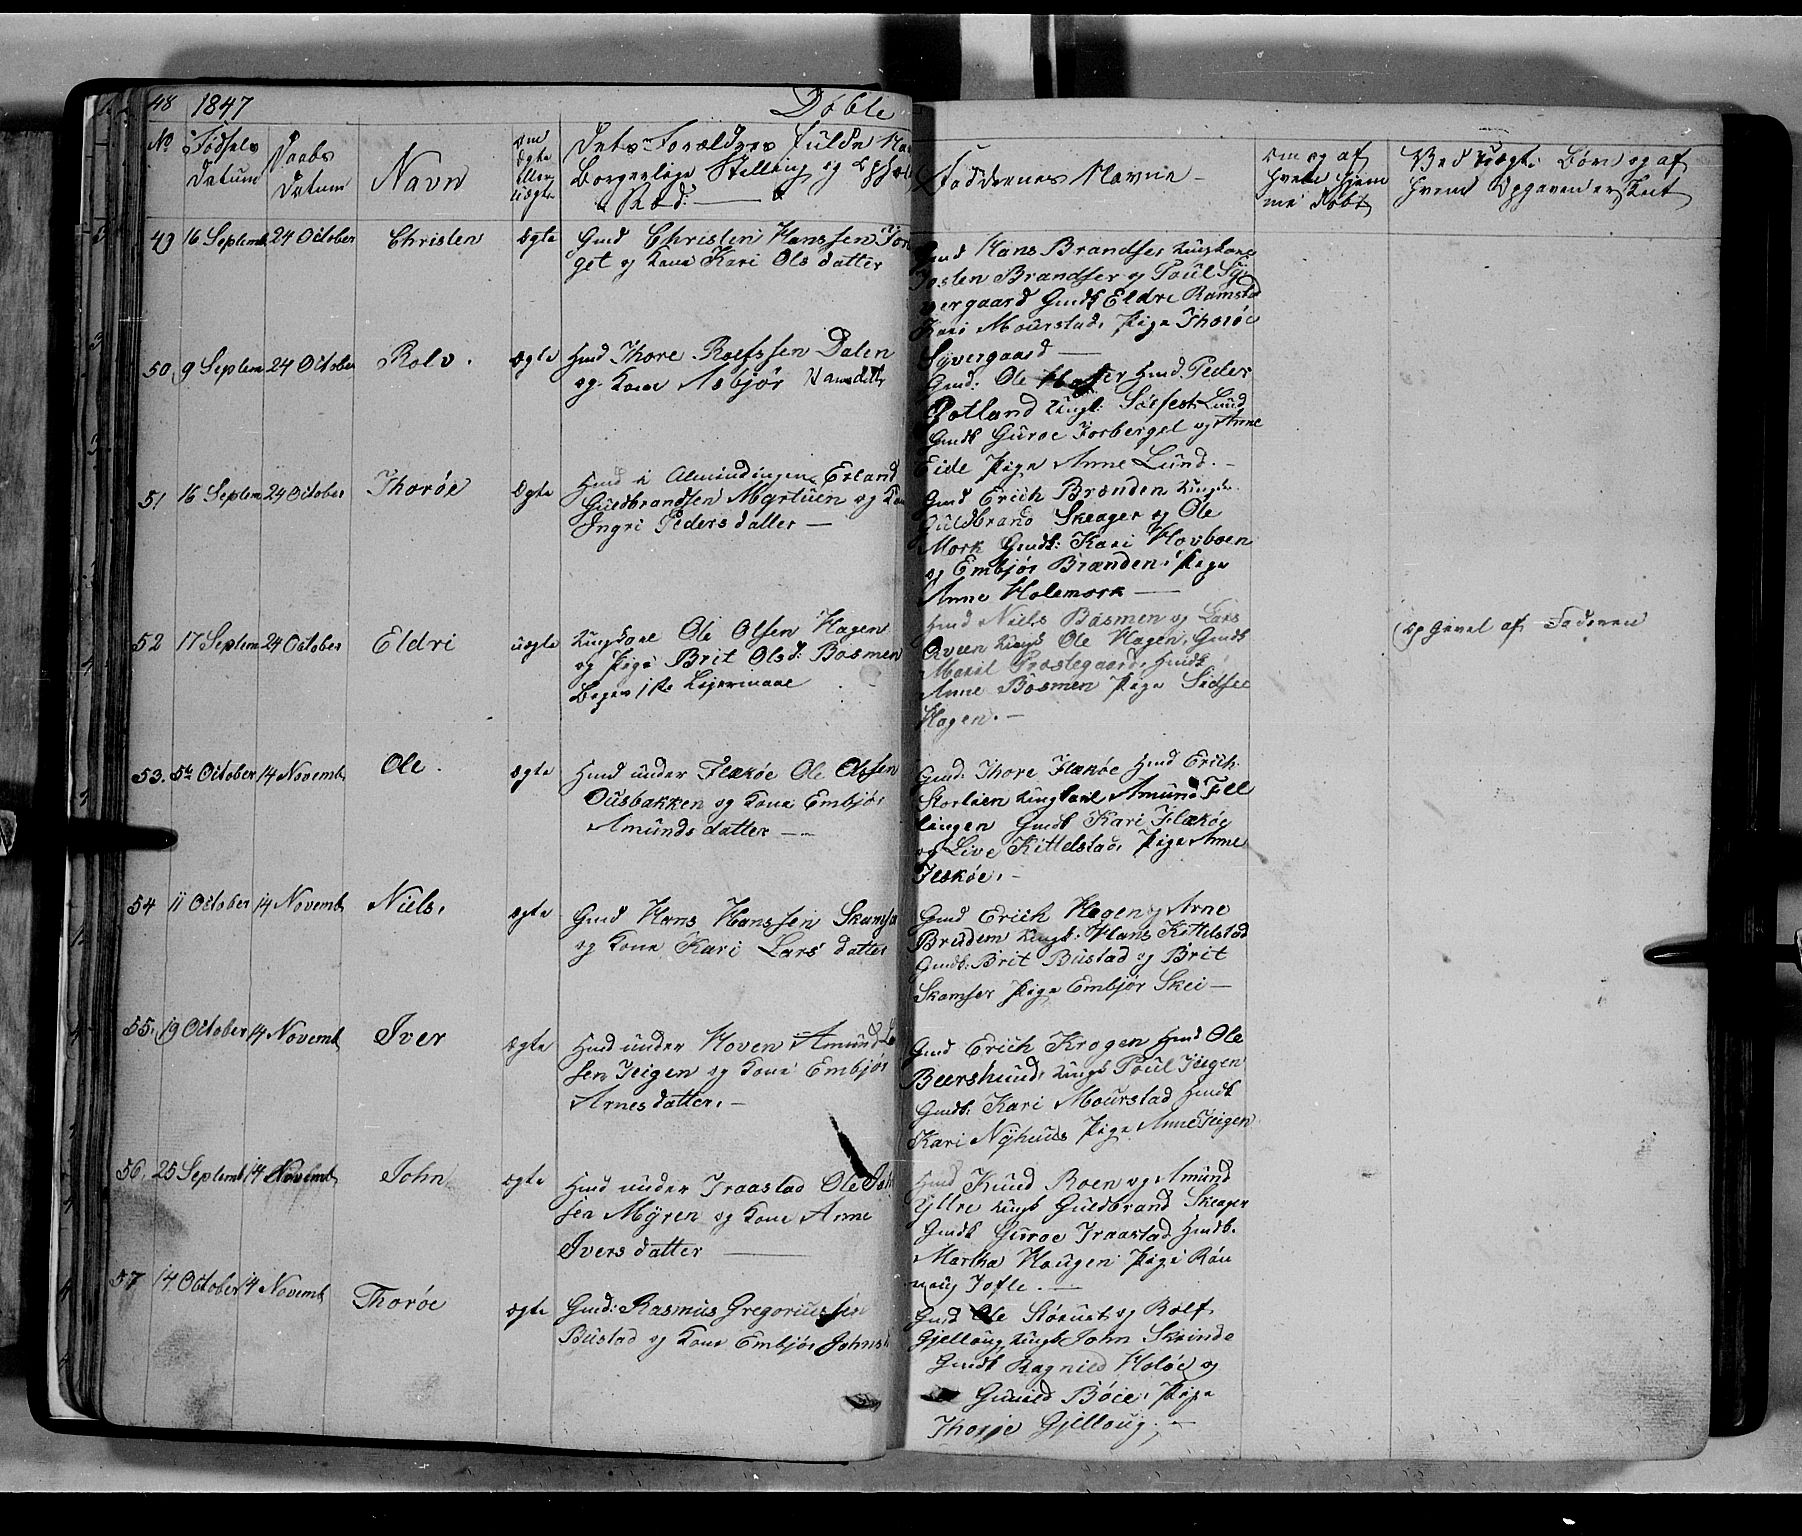 48 1847 Døbte
No Fødsels Datum Daabs Datum Navn Om Ægte eller Uægte Dets Forældres fulde Na
Borgerlige Stilling og
Faddernes Navne
Om og af hvem hjemme døbt
Ved Uægt: Børn og af
hvem Opgaven er skeet
49 16 Septemb 24 October Christen ægte Gmd Christen Hanssen For
get og Kone Kari Olsdatter
Gmd Hans Brandser Ungkare
Josten Brandser og Poul Sy
vergaard Gmdk Eldri Ramstad
Kari Mourstad, Pige Thoroe
Syvergaard —
50 9 Septem 24 October Rolv. ægte Hmd Thore Rolfssen Dalen
og Kone Asbjør Hansdattr
Gmd: Ole Hmd. Peder
Botland Ungk: Sørfest Lund
Gmdk Guroe Forberget og Anne
Eide Pige Anne Lund. —
51 16 Septem 24 October Thorøe ægte Hmd i Almindingen Erland
Guldbrandsen Myrtuen og Kon
Ingri Pedersdatter —
Gmd Erich Brænden Ungk
Guldbrand Skeager og Ole
Mork Gmdk: Kari Hovboen
og Embjør Brænden, Pige
Anne Holemork —
52 17 Septem 24 October Eldri uægte Ungkarl Ole Olsen Hagen
og Pige Brit Olsd: Bosmen
Beges 1ste Lejermaal
Hmd Niels Bosmen og Lars
Qveen Ungk Ole Hagen, Gmdk
Marit Præstegaard, Hmdk
Anne Bosmen Pige Sidsee
Hagen. —
Opgivet af Faderen
53. 5te October 14 Novemb Ole. ægte Hmd under Flækøe Ole Olssen
Ousbakken og Kone Embjør
Amundsdatter —
Gmd: Thore Flækøe Hmd Erich
Storlien Ungkarl Amund Fell
lingen Gmdk Kari Flækøe
og Live Kittelstad, Pige Anne
Flækøe. —
54 11 October 14 Novemb Niels, ægte Gmd Hans Hanssen Skamse
og Kone Kari Larsdatter
Gmd Erich Hagen og Arne
Bredem Ungk: Hans Kittelstad
Gmdk: Brit Bustad og Brit
Skamser Pige Embjør Skei —
55. 19 October 14 Novemb Iver ægte Hmd under Hoven Amund
sen Teigen og Kone Embjør
Arnesdatter. —
Gmd Erich Krogen Hmd Ole
Beershund, Ungk Poul Teigen
Gmdk: Kari Mourstad Hmdk
Kari Nyhuus Pige Anne Teigen
56, 25 Septemb 14 Novemb John ægte Hmd under Traastad Ole Joh
sen Myren og Kone Anne
Iversdatter —
Hmd Knud Roen og Amund
Yttre Ungk Guldbrand Skeager
Gmdk Guroe Traastad Hmdk.
Martha Haugen Pige Rön
naug Tofte. —
57 14 October 14 Novemb Thorøe ægte Gmd: Rasmus Gregoriussen
Bustad og Kone Embjør Johnsd
Gmd Ole og Rolf
Gjelloug, Ungk John Skrinde
Gmdk Ragnild Holøe og
Gunild Böie, Pige
Thorøe Gjelloug, —